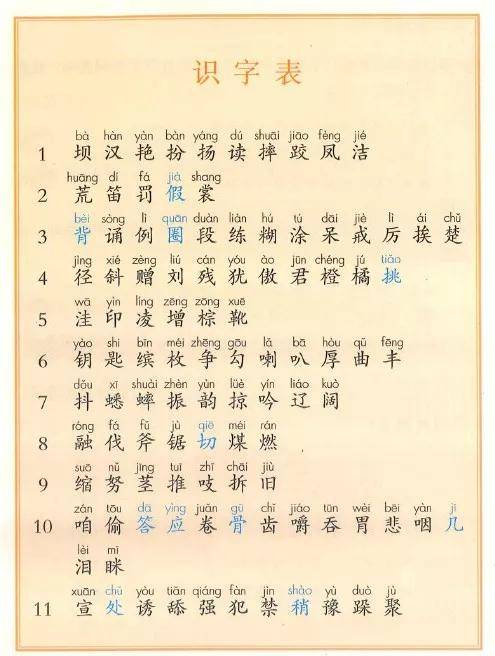 识字表
bà hàn yàn bàn yáng dú shuāi jiāo fèng jié
1 坝 汉 艳 扮 扬 读 摔 跤 凤 洁
huāng dí fá jià shang
2 荒 笛 罚 假 裳
bèi sòng lì quān duàn liàn hú tú dāi jiè lì ái chǔ
3 背 诵 例 圈 段 练 糊 涂 呆 戒 厉 挨 楚
jìng xié zèng liú cán yóu ào jūn chéng jú tiāo
4 径 斜 赠 刘 残 犹 傲 君 橙 橘 挑
wā yìn líng zēng zōng xuē
5 洼 印 凌 增 棕 靴
yào shi bīn méi zhēng gōu lǎ bā hòu qū fēng
6 钥 匙 缤 枚 争 勾 喇 叭 厚 曲 丰
dǒu xī shuài zhèn yùn lüè yín liáo kuò
7 抖 蟋 蟀 振 韵 掠 吟 辽 阔
róng fá fǔ jù qiē méi rán
8 融 伐 斧 锯 切 煤 燃
suō nǔ jīng tuī zhī chāi jiù
9 缩 努 茎 推 吱 拆 旧
zán tōu dā yìng juǎn gǔ chǐ jiáo tūn wèi bēi yàn jǐ
10 咱 偷 答 应 卷 骨 齿 嚼 吞 胃 悲 咽 几
lèi mī
泪 眯
xuān chù yòu tiǎn qiáng fàn jìn shào yù duò jù
11 宣 处 诱 舔 强 犯 禁 稍 豫 跺 聚